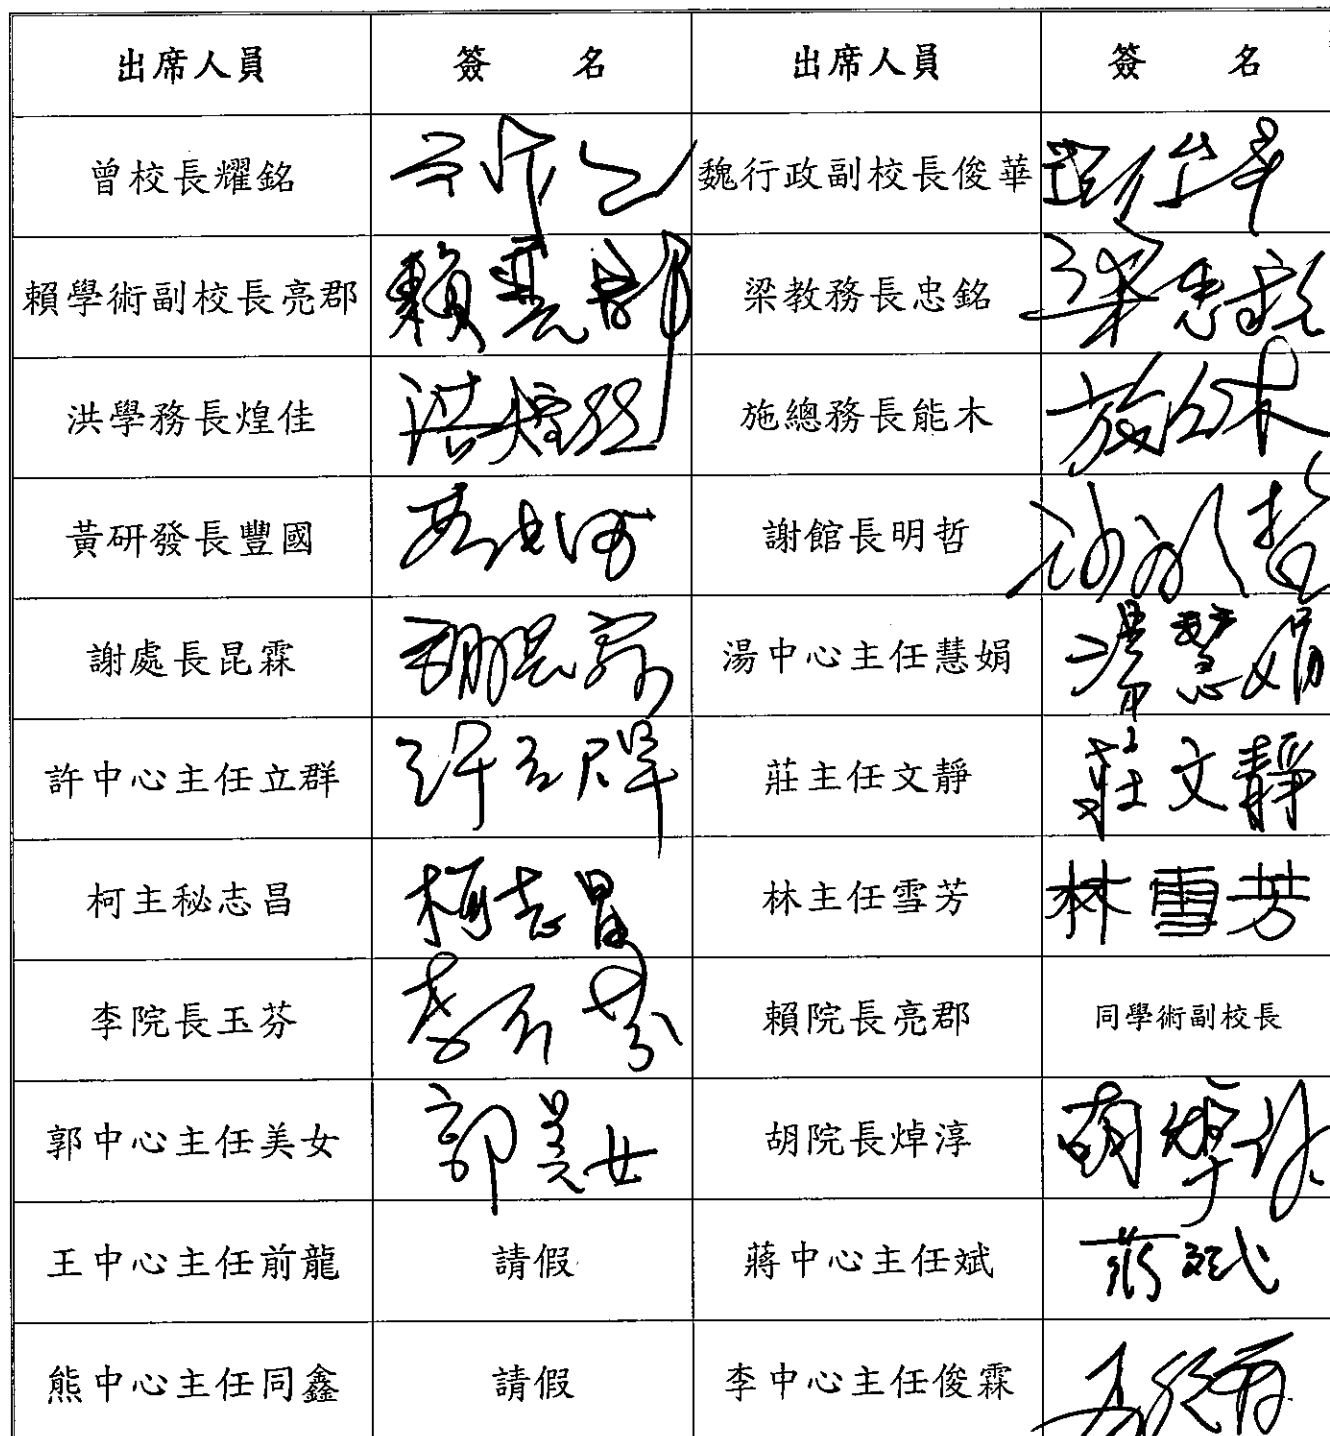 出席人員 簽 名 出席人員 簽 名
曾校長耀銘 魏行政副校長俊華
賴學術副校長亮郡 賴亮郡 梁教務長忠銘 梁忠銘
洪學務長煌佳 洪煌佳 施總務長能木 施能木
黃研發長豐國 謝館長明哲
謝處長昆霖 謝昆霖 湯中心主任慧娟 湯慧娟
許中心主任立群 許立群 莊主任文靜 莊文靜
柯主秘志昌 柯志昌 林主任雪芳 林雪芳
李院長玉芬 李玉芬 賴院長亮郡 同學術副校長
郭中心主任美女 郭美女 胡院長焯淳 胡焯淳
王中心主任前龍 請假 蔣中心主任斌 蔣斌
熊中心主任同鑫 請假 李中心主任俊霖